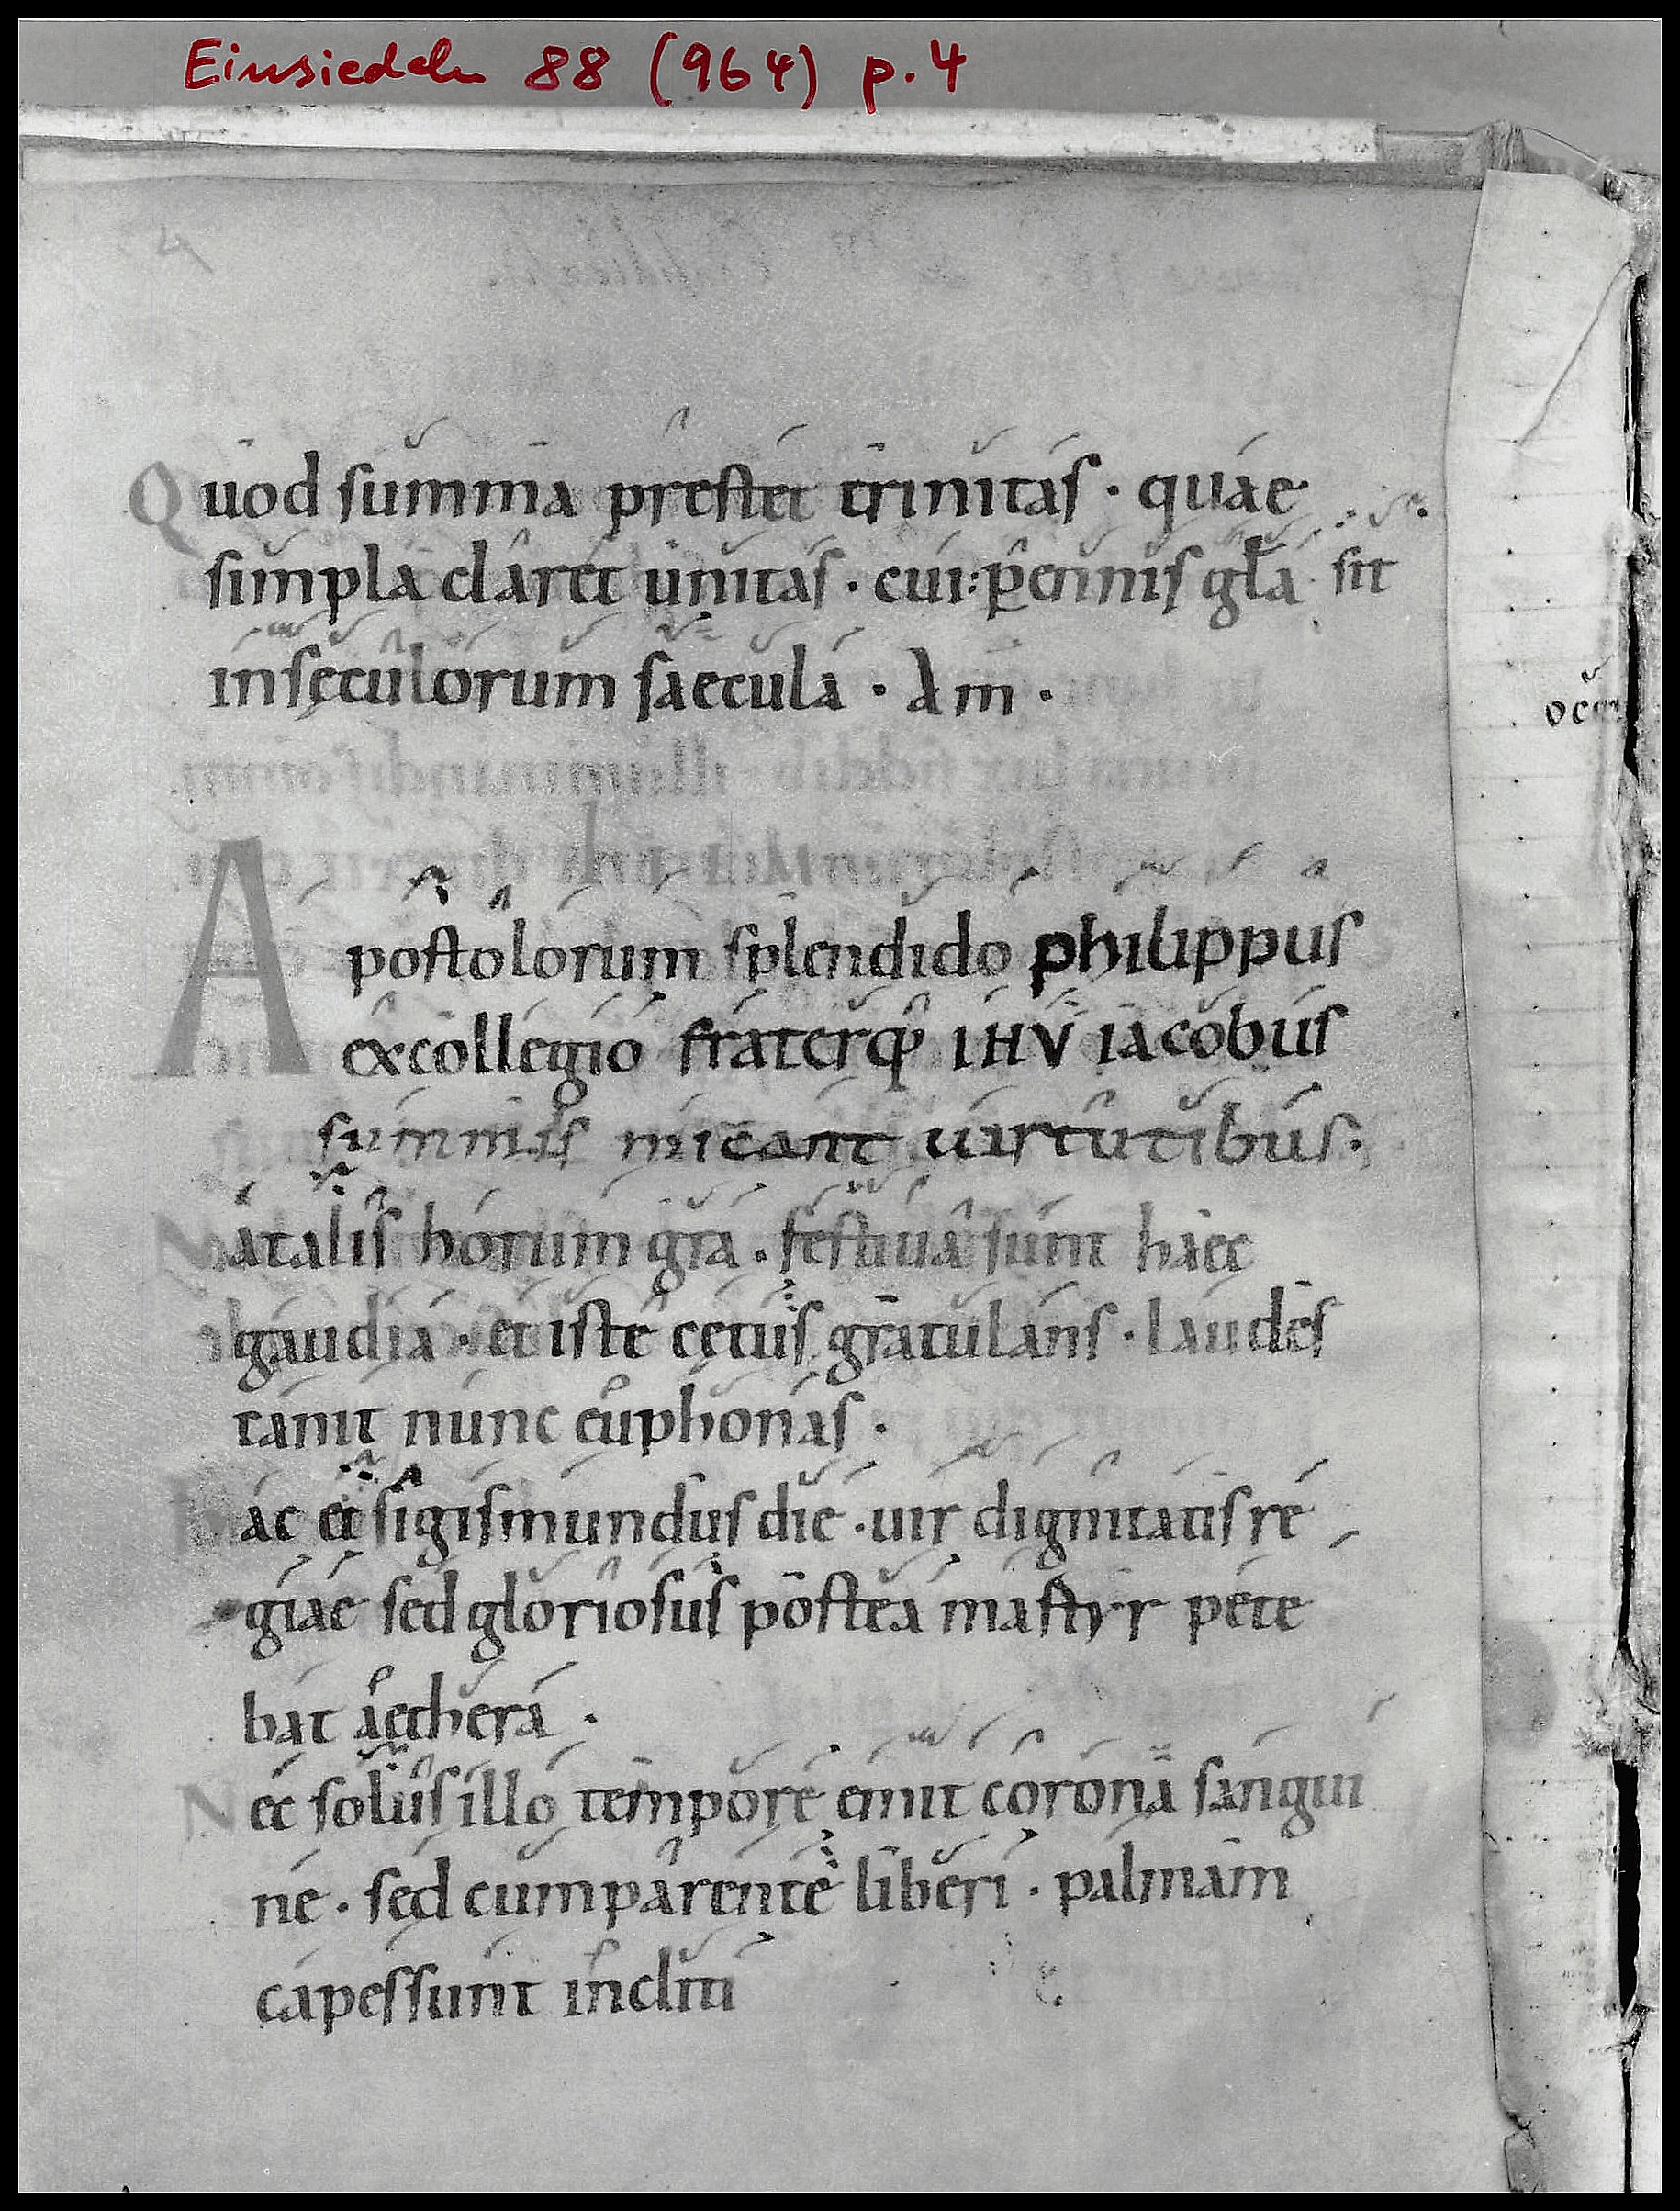 Einsiedeln 88 (964) p. 4
4
Quod summa prestet trinitas · quae
simpla claret unitas · cui: p̄ennis gl̄a sit
insęculorum saecula · Am̄ ·
Apostolorum splendido philippus
excollegio fraterq; IHV iacobus
summis micant uirtutibus ·
Natalis horum gr̄a · festiua sunt haec
gaudia · et iste cętus gratulans · laudes
canit nunc euphonas ·
Hac et sigismundus die · uir dignitatis re
giae sed gloriosus postea martyr pete
bat aethera ·
Nec solus illo tempore emit corona sangui
ne · sed cumparente liberi · palmam
capessunt incliti